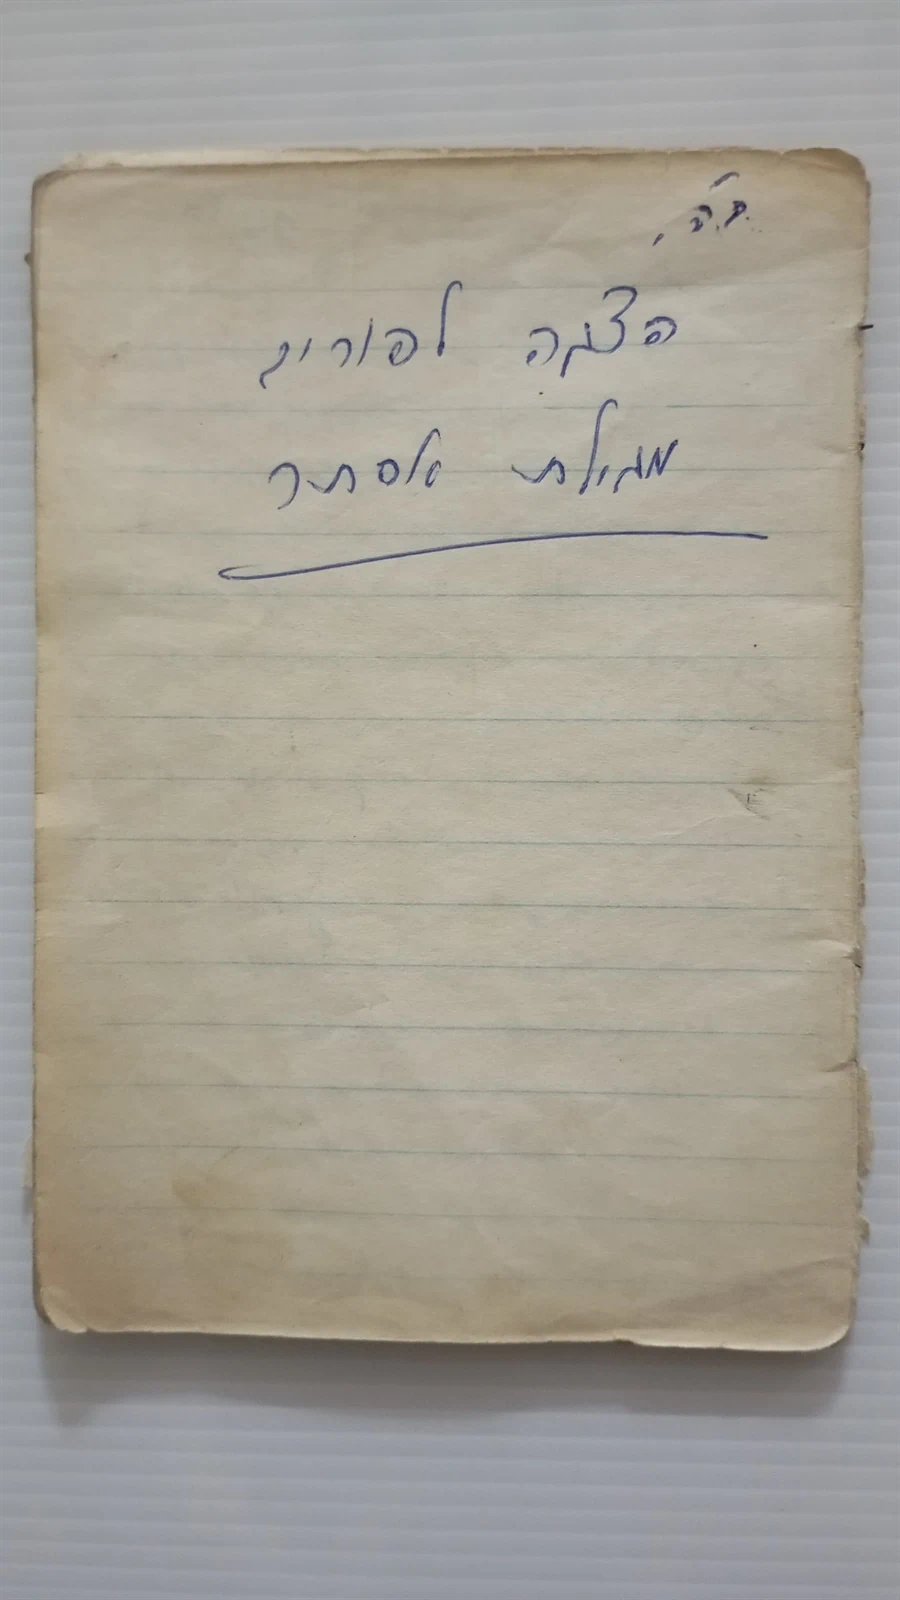 ב"ה,
הצגה לפורים
מגילת אסתר